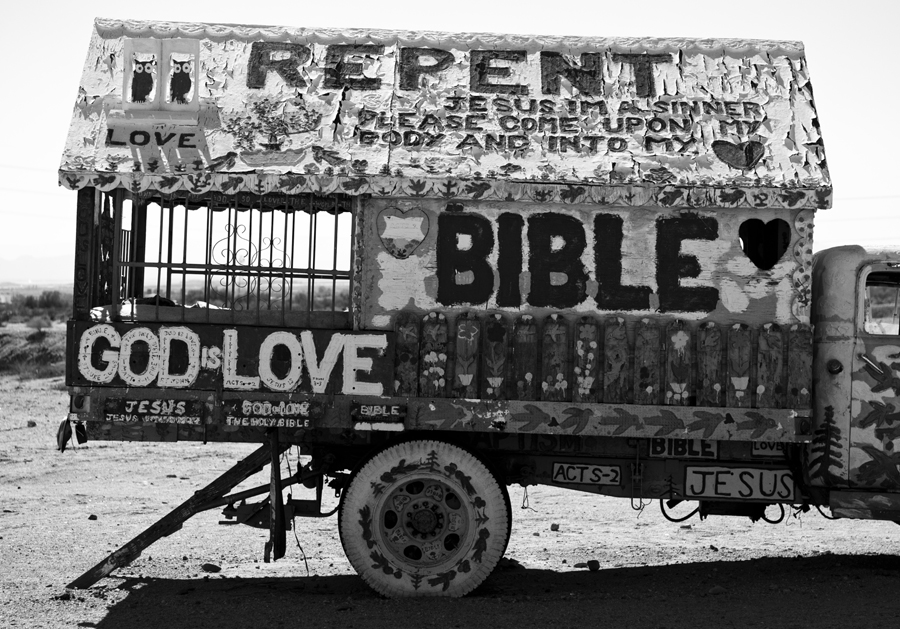 REPENT
JESUS IM A SINNER
PLEASE COME UPON MY
BODY AND INTO MY
LOVE
BIBLE
GOD IS LOVE
JESUS
GOD IS LOVE
THE HOLY BIBLE
BIBLE
BIBLE
ACTS-2
JESUS